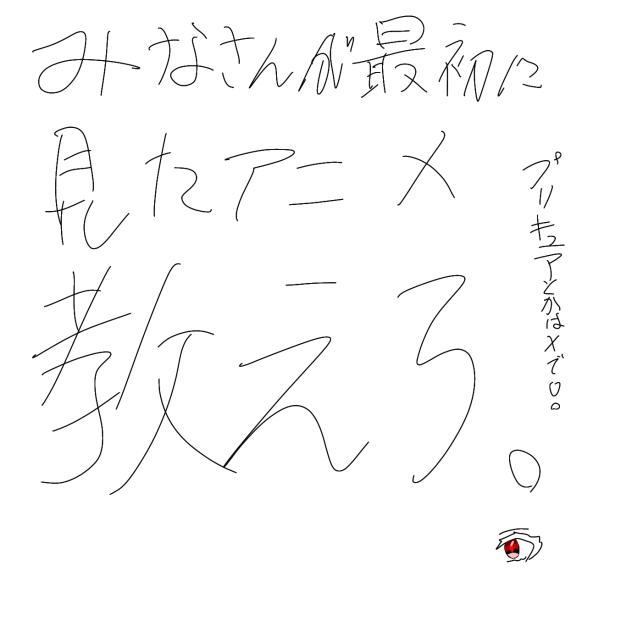 みなさんが最初に
見たアニメ
教えろ。
プリキュアとかは×で。。